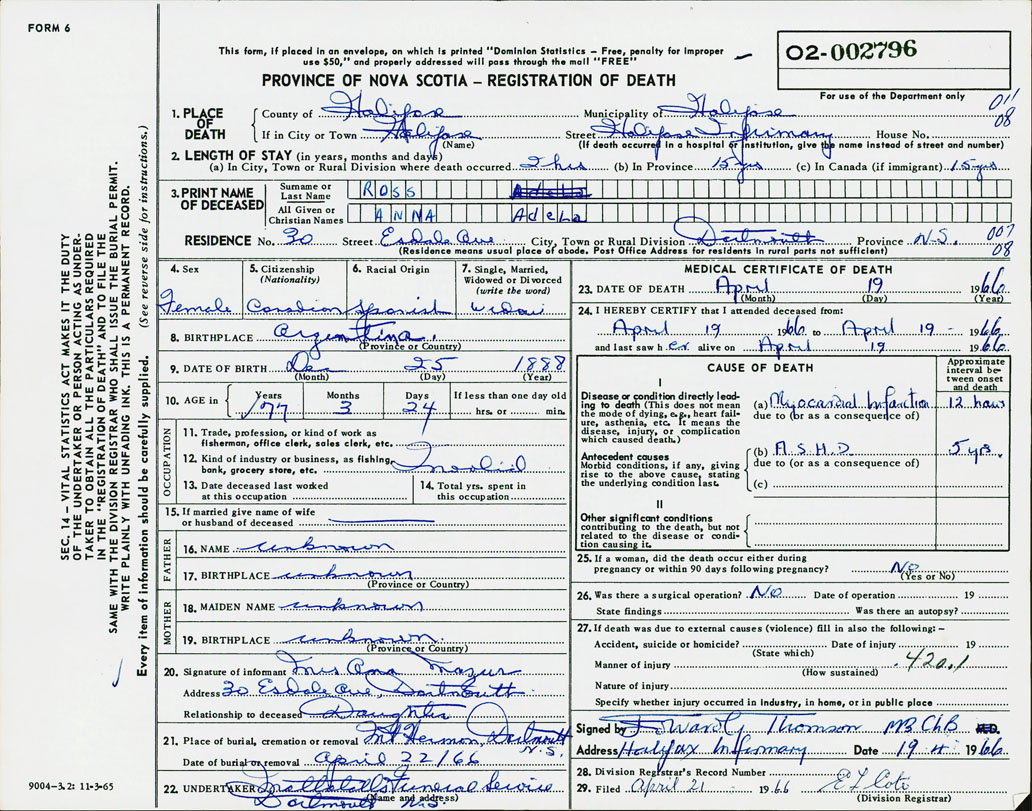 FORM 6
This form, if placed in an envelope, on which is printed "Dominion Statistics – Free, penalty for improper
use $50," and properly addressed will pass through the mail "FREE"
02-002796
PROVINCE OF NOVA SCOTIA – REGISTRATION OF DEATH
For use of the Department only
011
08
1. PLACE OF DEATH
County of Halifax Municipality of Halifax
If in City or Town Halifax Street Halifax Infirmary House No.
(Name) (If death occurred in a hospital or institution, give the name instead of street and number)
2. LENGTH OF STAY (in years, months and days)
(a) In City, Town or Rural Division where death occurred 2 hrs (b) In Province 15 yrs (c) In Canada (if immigrant) 15 yrs
3. PRINT NAME OF DECEASED
Surname or Last Name ROSS Adela
All Given or Christian Names ANNA Adela
RESIDENCE No. 30 Street Esdale Ave City, Town or Rural Division Dartmouth Province N.S. 007
08
(Residence means usual place of abode. Post Office Address for residents in rural parts not sufficient)
4. Sex
Female
5. Citizenship (Nationality)
Canadian
6. Racial Origin
Spanish
7. Single, Married, Widowed or Divorced (write the word)
Widow
8. BIRTHPLACE Argentina
(Province or Country)
9. DATE OF BIRTH Dec 25 1888
(Month) (Day) (Year)
10. AGE in Years 77 Months 3 Days 24 If less than one day old
hrs. or min.
OCCUPATION
11. Trade, profession, or kind of work as
fisherman, office clerk, sales clerk, etc.
12. Kind of industry or business, as fishing,
bank, grocery store, etc. Invalid
13. Date deceased last worked
at this occupation
14. Total yrs. spent in
this occupation
15. If married give name of wife
or husband of deceased
FATHER
16. NAME unknown
17. BIRTHPLACE unknown
(Province or Country)
MOTHER
18. MAIDEN NAME unknown
19. BIRTHPLACE unknown
(Province or Country)
20. Signature of informant Mrs Ana Mazur
Address 30 Esdale Ave, Dartmouth
Relationship to deceased Daughter
21. Place of burial, cremation or removal Mt Hermon, Dartmouth
N.S.
Date of burial or removal April 22/66
22. UNDERTAKER Funeral Service
(Name and address)
Dartmouth N.S.
MEDICAL CERTIFICATE OF DEATH
23. DATE OF DEATH April 19 1966
(Month) (Day) (Year)
24. I HEREBY CERTIFY that I attended deceased from:
April 19 1966 to April 19 - 1966
and last saw her alive on April 19 1966
CAUSE OF DEATH
Approximate interval between onset and death
I
Disease or condition directly leading to death (This does not mean the mode of dying, e.g., heart failure, asthenia, etc. It means the disease, injury, or complication which caused death.)
(a) Myocardial Infarction 12 hours
due to (or as a consequence of)
Antecedent causes
Morbid conditions, if any, giving rise to the above cause, stating the underlying condition last.
(b) A.S.H.D. 5 yrs.
due to (or as a consequence of)
(c)
II
Other significant conditions
contributing to the death, but not related to the disease or condition causing it.
25. If a woman, did the death occur either during
pregnancy or within 90 days following pregnancy? No
(Yes or No)
26. Was there a surgical operation? No Date of operation 19
State findings Was there an autopsy?
27. If death was due to external causes (violence) fill in also the following: –
Accident, suicide or homicide? Date of injury 19
(State which)
Manner of injury 420.1
(How sustained)
Nature of injury
Specify whether injury occurred in industry, in home, or in public place
Signed by Edward G Thomson MB ChB M.D.
Address Halifax Infirmary Date 19 4 1966
28. Division Registrar's Record Number
29. Filed April 21 1966
(Division Registrar)
SEC. 14 – VITAL STATISTICS ACT MAKES IT THE DUTY
OF THE UNDERTAKER OR PERSON ACTING AS UNDER-
TAKER TO OBTAIN ALL THE PARTICULARS REQUIRED
IN THE "REGISTRATION OF DEATH" AND TO FILE THE
SAME WITH THE DIVISION REGISTRAR WHO SHALL ISSUE THE BURIAL PERMIT.
WRITE PLAINLY WITH UNFADING INK. THIS IS A PERMANENT RECORD.
Every item of information should be carefully supplied. (See reverse side for instructions.)
9004–3.2: 11-3-65